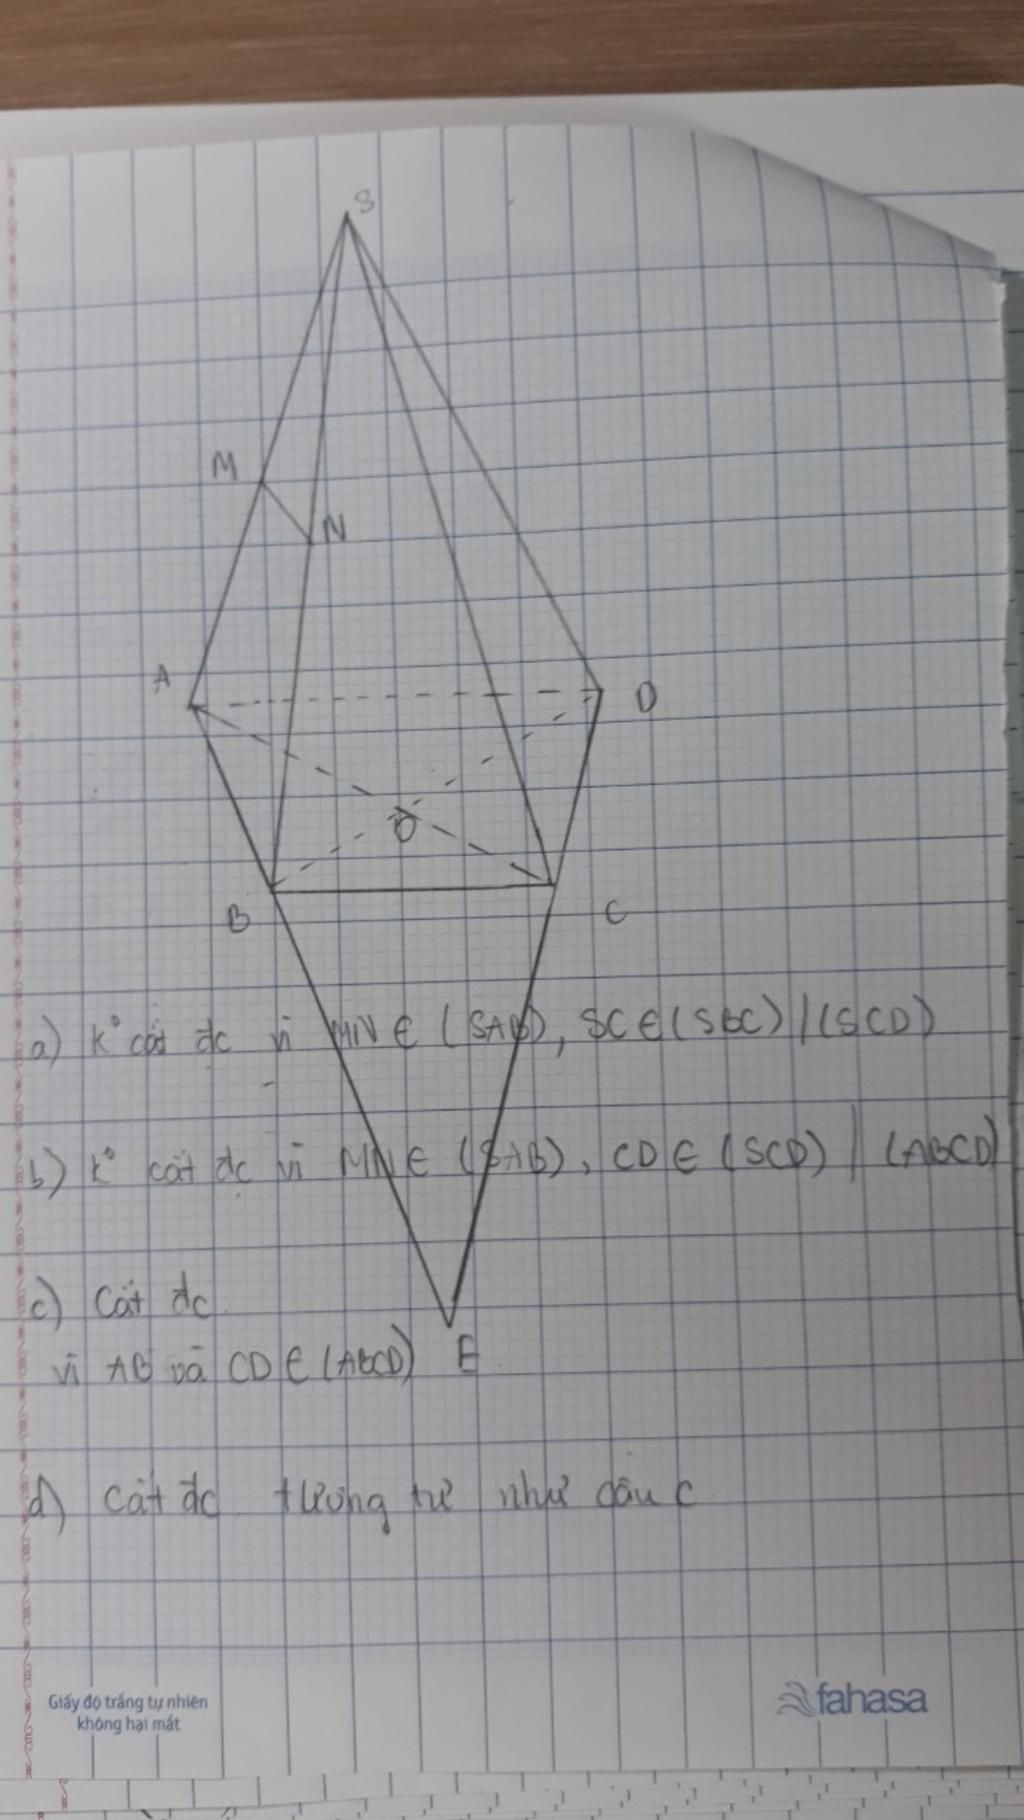 S
M
N
A
D
O
B
C
a) K° cắt đc vì MN ∈ (SAB), SC ∈ (SBC) / (SCD)
b) K° cắt đc vì MN ∈ (SAB), CD ∈ (SCD) / (ABCD)
c) Cắt đc
vì AB và CD ∈ (ABCD)
E
d) Cắt đc tương tự như câu c
Giấy độ trắng tự nhiên
không hại mắt
fahasa